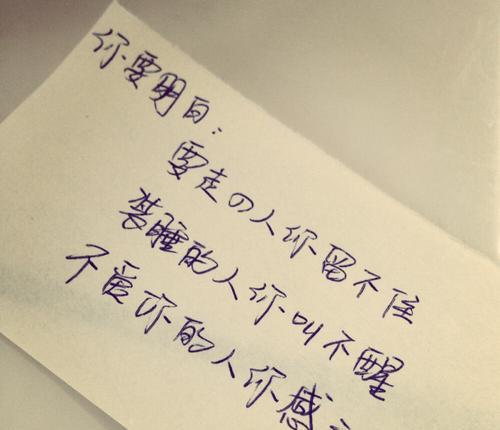 你要明白:
要走の人你留不住
装睡的人你叫不醒
不爱你的人你感